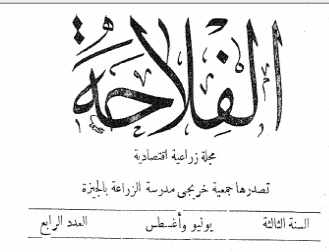 الفلاحة
مجلة زراعية اقتصادية
تصدرها جمعية خريجى مدرسة الزراعة بالجيزة
السنة الثالثة يونيو وأغسطس العدد الرابع